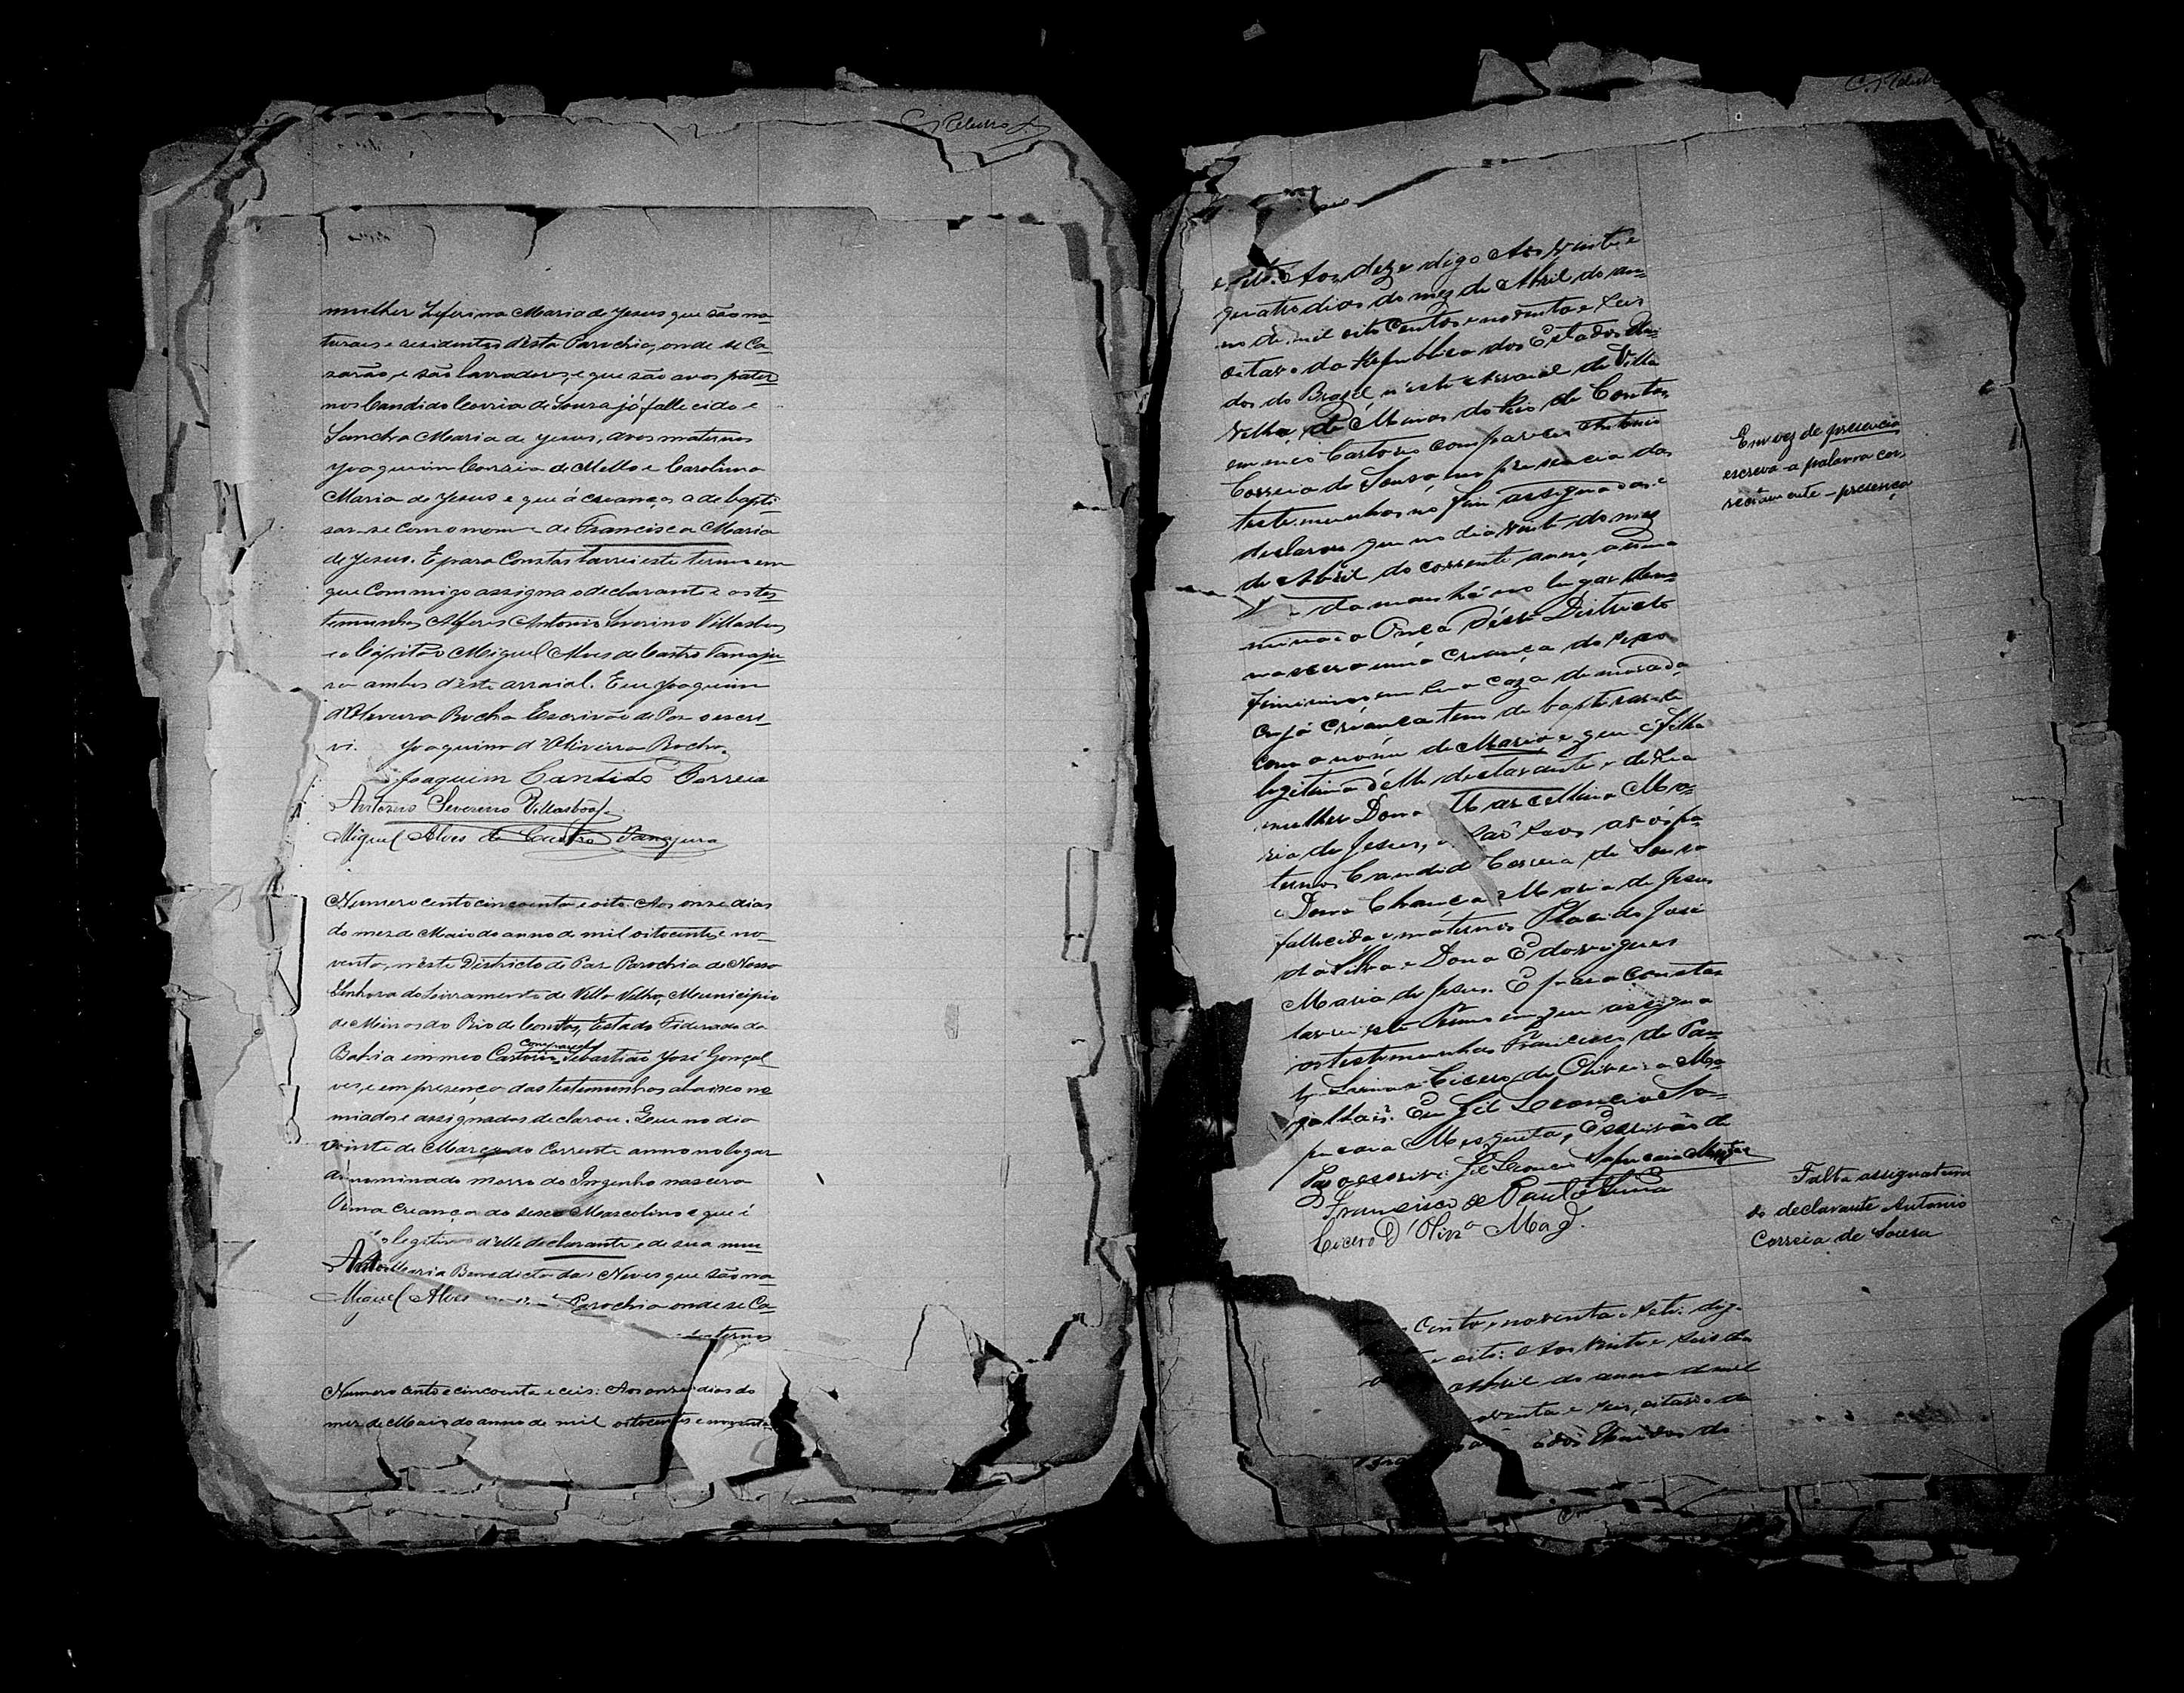 C. Ribeiro
mulher Zeferina Maria de Jesus que são na
turaes e residentes d'esta Parochia, onde se Ca
sarão, e são lavradores, e que são avos pater
nos Candido Correia de Sousa já fallecido e
Sancha Maria de Jesus, avos maternos
Joaquim Correia de Mello e Carolina
Maria de Jesus e que á creança a de bapti
sar-se com o nome de Francisca Maria
de Jesus. E para Constar lavrei este termo em
que Commigo assigna o declarante e as tes
temunhas Alferes Antonio Severino Villasboas
e o Capitão Miguel Alves de Castro Tanaju
ra ambos d'este arraial. Eu Joaquim
d'Oliveira Rocha Escrivão de Paz o escre
vi. Joaquim d'Oliveira Rocha
Joaquim Candido Correia
Antonio Severino Villasboas
Miguel Alves de Castro Tanajura
Numero cento cincoenta e oito. Aos onze dias
do mez de Maio do anno de mil oitocentos e no-
venta, n'este Districto de Paz Parochia de Nossa
Senhora do Livramento de Villa Velha, Municipio
de Minas do Rio de Contas, Estado Federado da
Bahia em meo Cartorio compareceo Sebastião José Gonçal
ves, e em presença das testemunhas abaixo no
miadas e assignadas declarou: Que no dia
vinte de Março do Corrente anno no lugar
denominado morro do Engenho nascera
uma creança do sexo Mascolino e que é
legitimo d'elle declarante e de sua mu
Anto Maria Benedicta das Neves que são na
Miguel Alves Parochia onde se Ca
aternos
Numero cento e cincoenta e ceis: Aos onze dias do
mez de Maio do anno de mil oitocentos e noventa
e sete: Aos deze digo Aos vinte e
quatro dias do mez de Abril do an-
no de mil oito Centos e noventa e seis
oitavo da Republica dos Estados Uni
dos do Brazil n'este Arraial de Villa
Velha, de Minas do Rio de Contas,
em meo Cartorio compareceu Antonio
Correia de Sousa na presencia das
testemunhas no fim assignadas e
declarou que no dia vinte do mez
de Abril do corrente anno, a uma
da manhã no lugar deno-
minado Onça d'este Districto
nascera uma Creança do sexo
feminino em sua caza de morada
cuja creança tem de baptisar-se
com o nome de Maria e que é filha
legitima d'elle declarante e de sua
mulher Dona Marcellina Ma-
ria de Jesus, são seos avós pa-
ternos Candido Correia de Sousa
e Dona Chanca Maria de Jesus
fallecida e maternos Placido José
da Silva e Dona Edoviges
Maria de Jesus. E para constar
lavrei este termo em que assigna
as testemunhas Francisco de Pau-
la Lima e Cicero de Oliveira Ma-
galhais. Eu Gil Leoncio Sa-
pucaia Mesquita, Escrivão de
Paz o escrivi. Gil Leoncio Sapucaia Mesqta
Francisco de Paula Lima
Cicero d'Olivra Mag.
Em vez de presencia
escreva-a palavra cor-
rectamente-presença
Falta assignatura
do declarante Antonio
Correia de Sousa
Cento e noventa e sete: dig-
e oito: Aos vinte e seis dia
Abril do anno de mil
noventa e seis, oitavo da
dos Unidos do